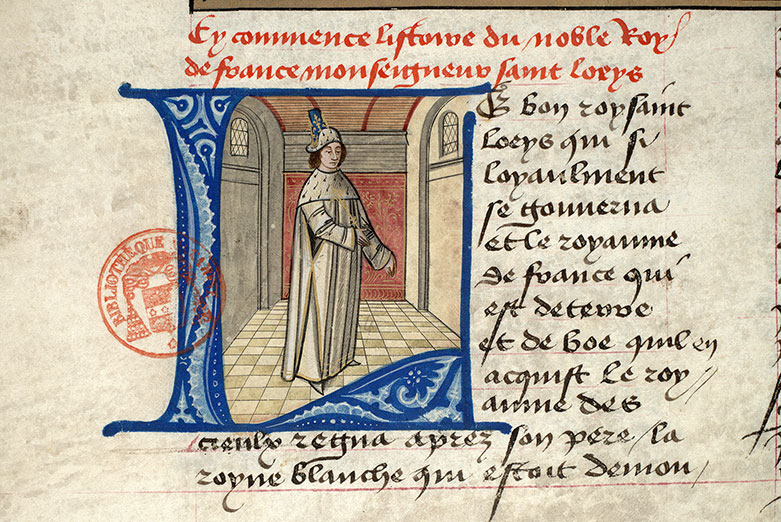 Cy commence listoire du noble Roy
de france monseigneur saint loeys
LE bon roy saint
loeys qui si
loyaulment
se gouuerna
et le royaume
de france qui
est de terre
et de boe quil en
acquist le roy
aume des
cieulx regna aprez son pere / la
royne blanche qui estoit demou /
BIBLIOTHÈQUE